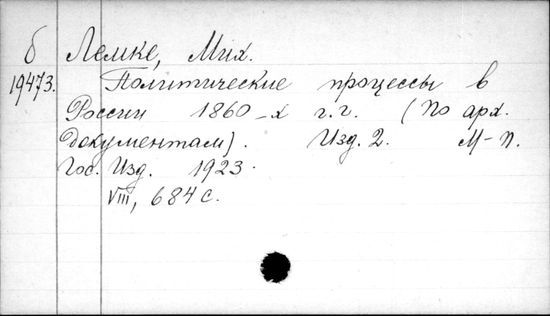 б Лемке, Мих.
19473. Политические процессы в
России 1860-х г.г. (По арх.
документам). Изд. 2. М-П.
Гос. Изд. 1923.
VIII, 684 с.